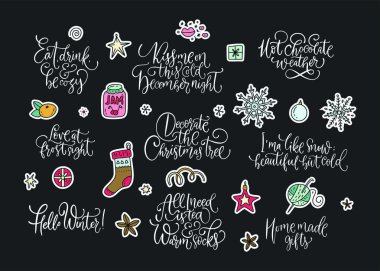 Eat, drink
&
be cozy
Kiss me on
this cold
December night
Hot chocolate
weather
JAM
Love at
frost night
Decorate
the
Christmas tree
I'm a like snow-
beautiful but cold
Hello Winter!
All I need
is tea
&
Warm socks
Home made
gifts